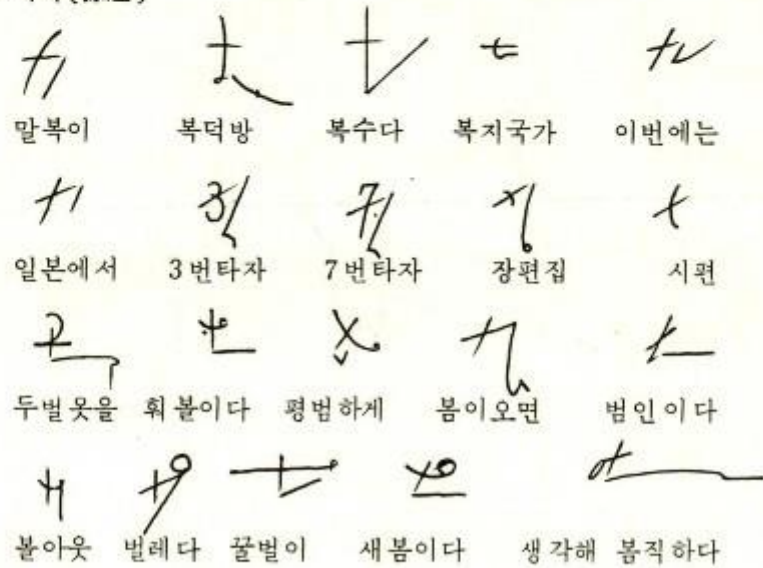 말복이 복덕방 복수다 복지국가 이번에는
일본에서 3번타자 7번타자 장편집 시편
두벌옷을 훠볼이다 평범하게 봄이오면 범인이다
볼아웃 벌레다 꿀벌이 새봄이다 생각해 봄직하다